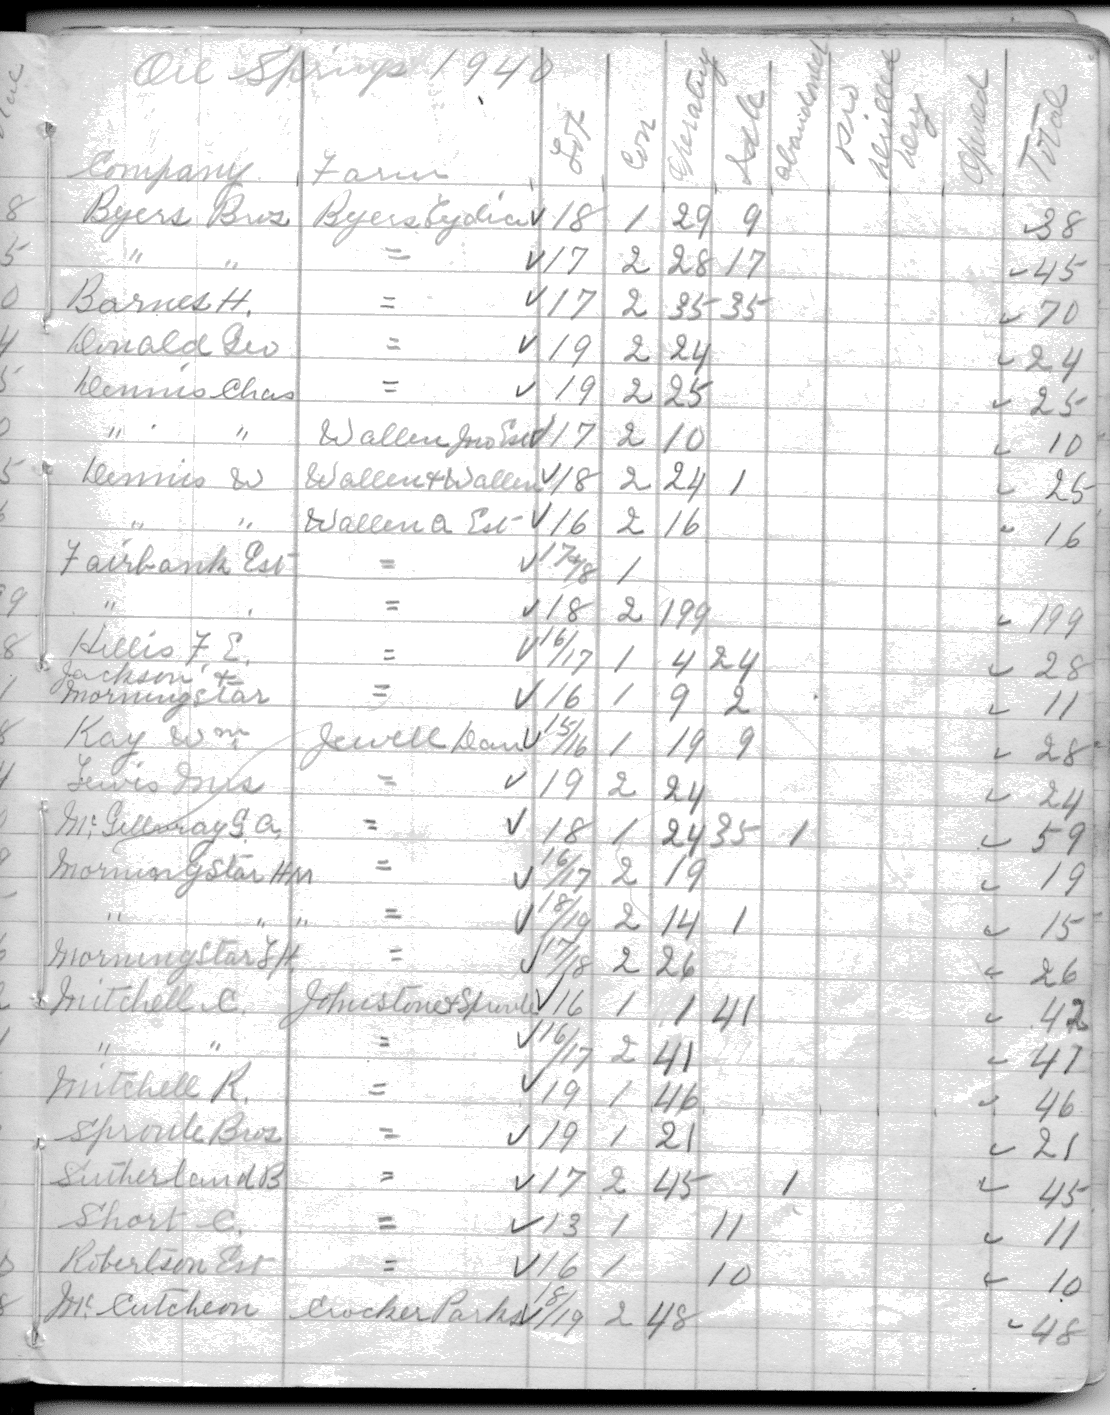 Oil Springs 1940
Company Farm Lot Con Operating Idle abandoned Dry Opened Total
Byers Bros Byers Lydia ✓ 18 1 29 9 ✓ 38
" " = ✓ 17 2 28 17 ✓ 45
Barnes H. = ✓ 17 2 35 35 ✓ 70
Donald Geo = ✓ 19 2 24 ✓ 24
Dennis Chas = ✓ 19 2 25 ✓ 25
" " Wallen Jno Est ✓ 17 2 10 ✓ 10
Dennis W Wallen + Wallen ✓ 18 2 24 1 ✓ 25
" " Wallen A Est ✓ 16 2 16 ✓ 16
Fairbank Est = ✓ 17/18 1
" " = ✓ 18 2 199 ✓ 199
Hillis F. E. = ✓ 16/17 1 4 24 ✓ 28
Jackson +
Morningstar = ✓ 16 1 9 2 ✓ 11
Kay Wm Jewell Dan ✓ 15/16 1 19 9 ✓ 28
Lewis Mrs = ✓ 19 2 24 ✓ 24
Mc Gillivray G. A. = ✓ 18 1 24 35 1 ✓ 59
Morningstar HM = ✓ 16/17 2 19 ✓ 19
" " " = ✓ 18/19 2 14 1 ✓ 15
Morningstar F H = ✓ 17/18 2 26 ✓ 26
Mitchell C. Johnstone + Sproule ✓ 16 1 1 41 ✓ 42
" " = ✓ 16/17 2 41 ✓ 41
Mitchell R. = ✓ 19 1 46 ✓ 46
Sproule Bros = ✓ 19 1 21 ✓ 21
Sutherland B = ✓ 17 2 45 1 ✓ 45
Short C. = ✓ 13 1 11 ✓ 11
Robertson Est = ✓ 16 1 10 ✓ 10
Mc Cutcheon Crocker Parks ✓ 18/19 2 48 ✓ 48